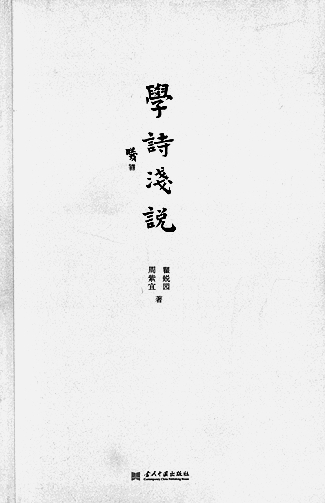 學詩淺說
瞿蛻园
周紫宜
著
当代中国出版社
Contemporary China Publishing House